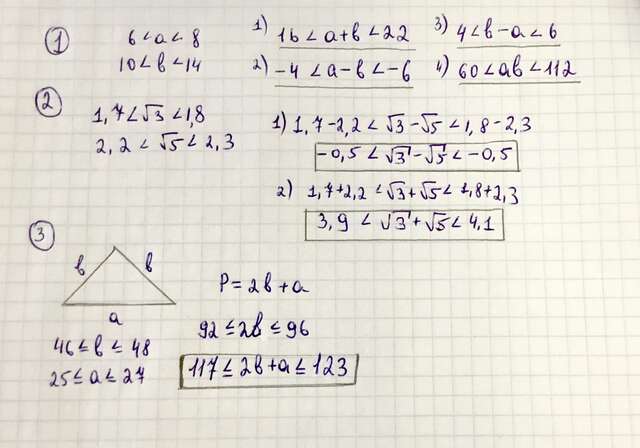 1 6 < a < 8 1) 16 < a+b < 22 3) 4 < b-a < 6
10 < b < 14 2) -4 < a-b < -6 4) 60 < ab < 112
2 1,7 < √3 < 1,8
2,2 < √5 < 2,3 1) 1,7-2,2 < √3-√5 < 1,8-2,3
-0,5 < √3-√5 < -0,5
2) 1,7+2,2 < √3+√5 < 1,8+2,3
3,9 < √3+√5 < 4,1
3
b b
P = 2b + a
a
46 ≤ b ≤ 48 92 ≤ 2b ≤ 96
25 ≤ a ≤ 27 117 ≤ 2b+a ≤ 123